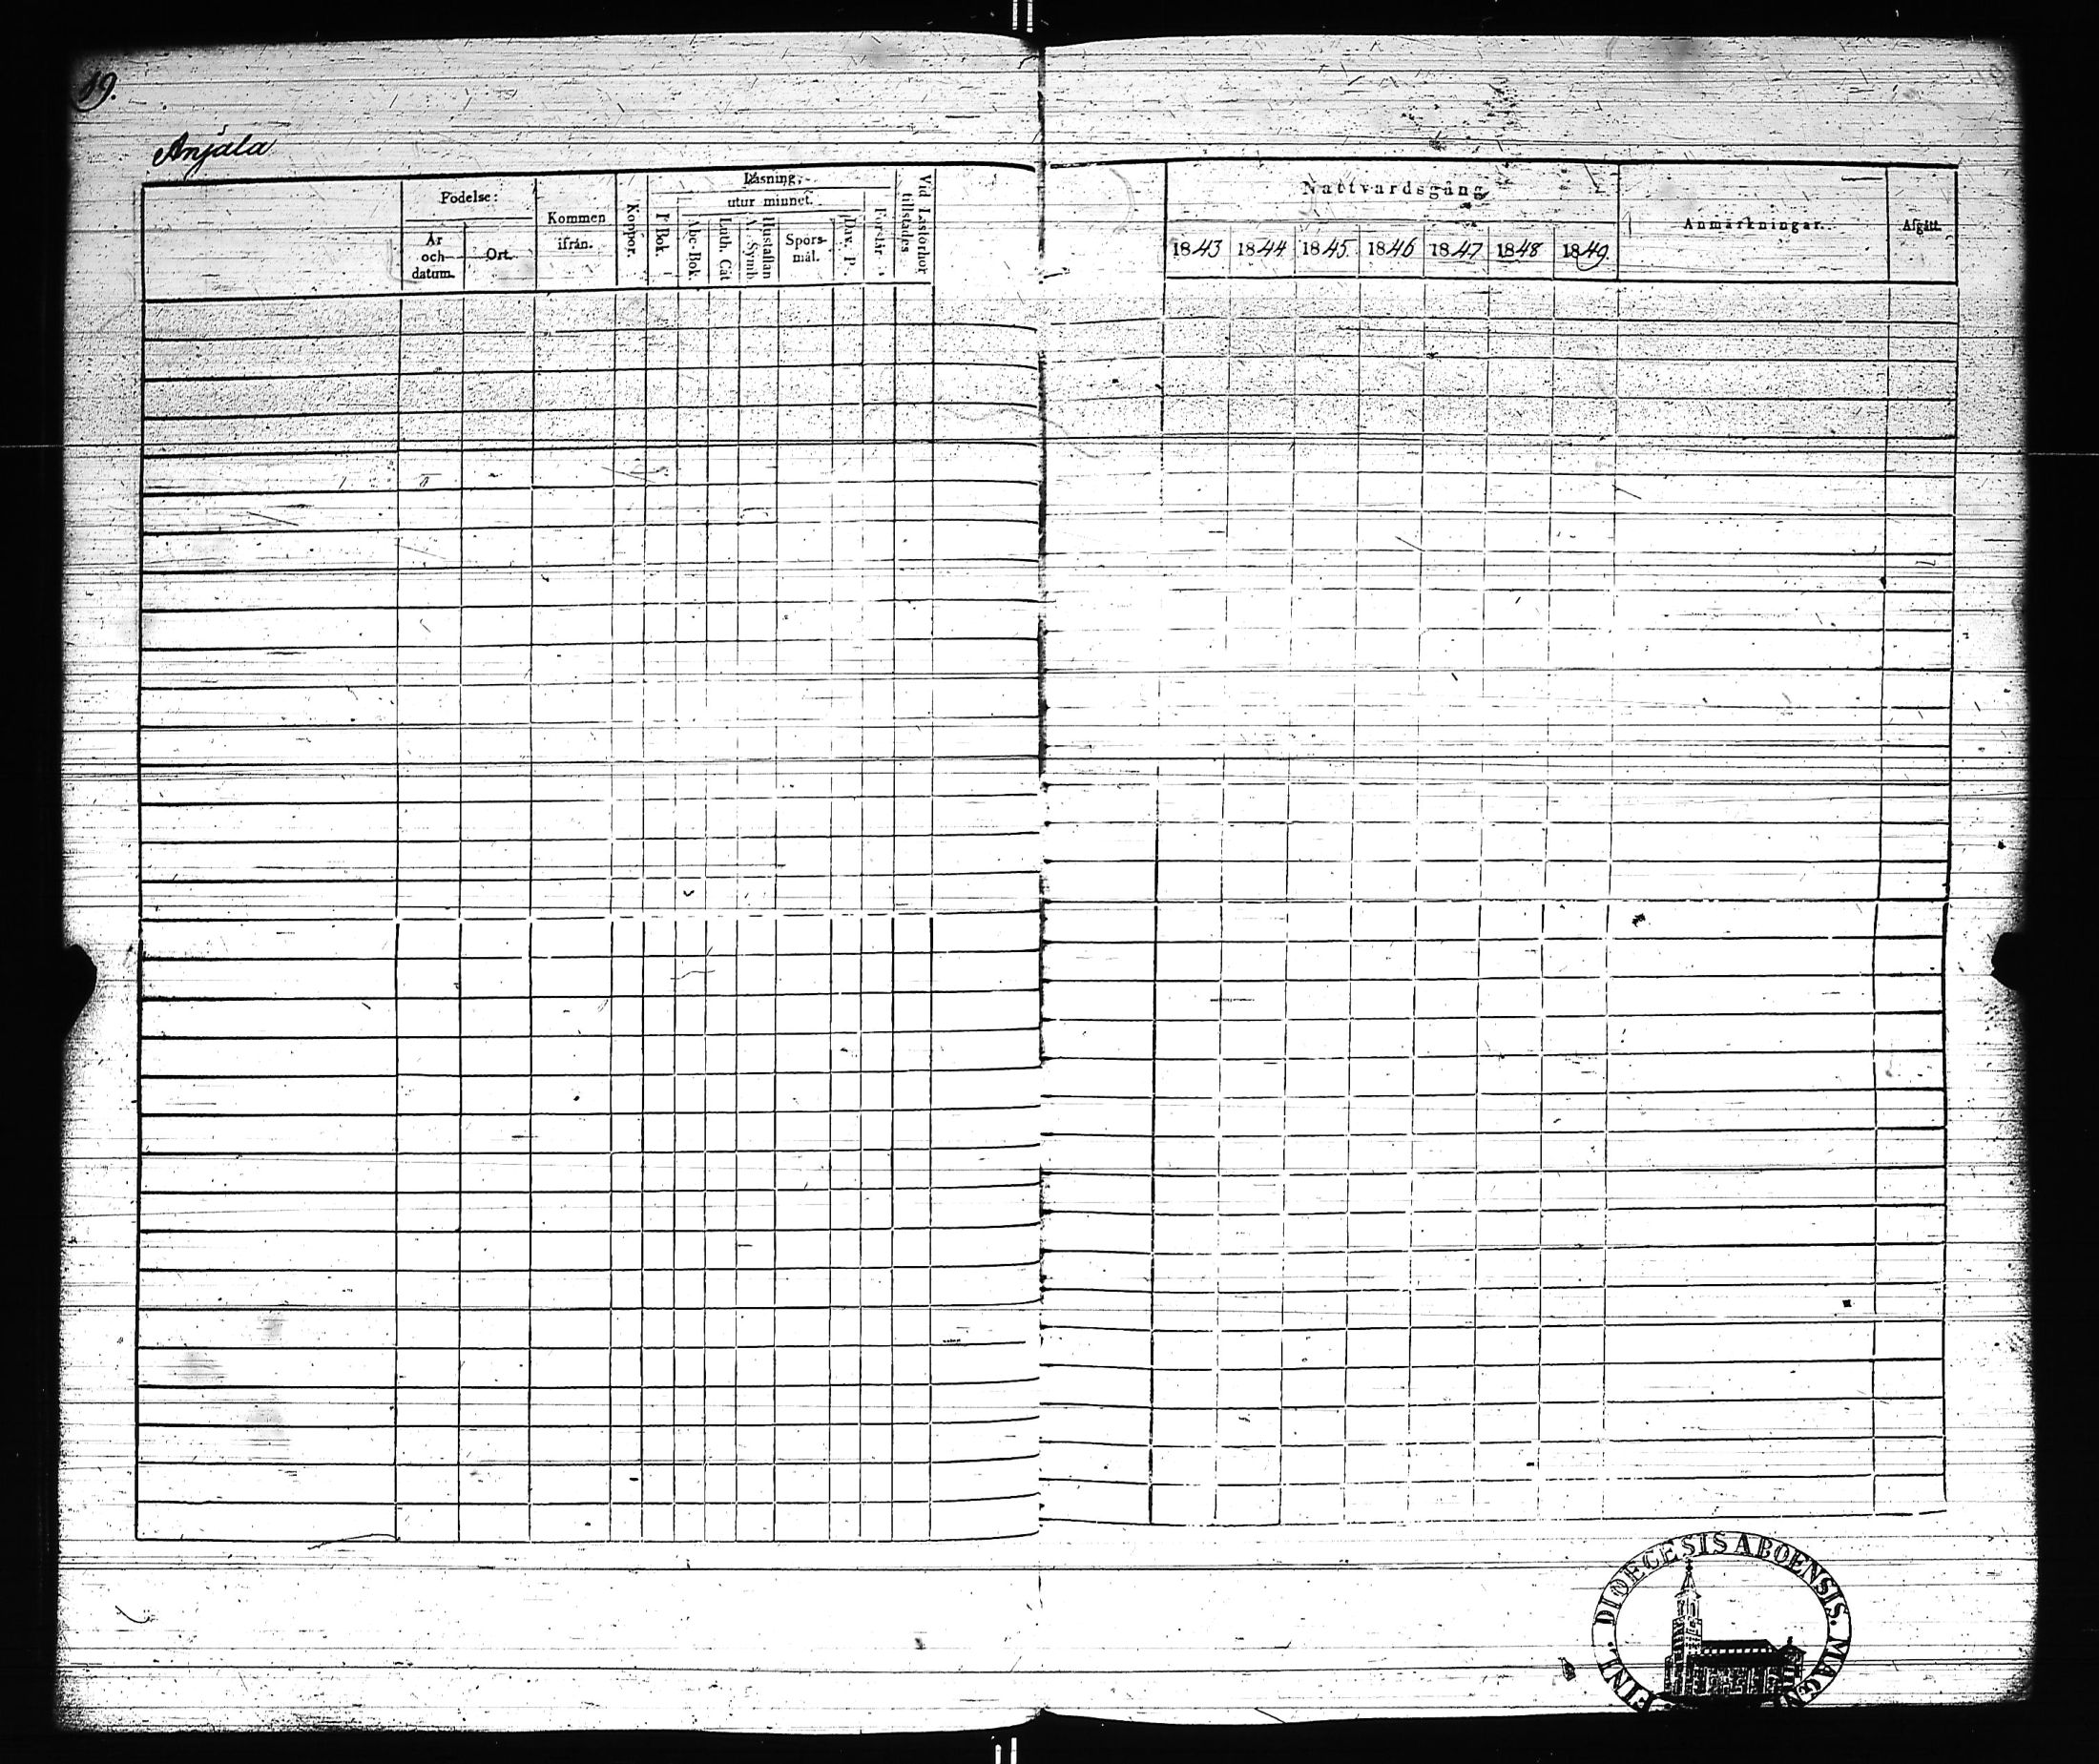 19.
Anjala
Födelse:
År och datum.
Ort.
Kommen ifrån.
Koppor.
Läsning.
utur minnet.
I Bok.
Abc-Bok.
Luth. Cat.
Hustaflan
A. Symb.
Spörs-mål.
Dav. P.
Förstår
Vid Läsförhör tillstädes
Nattvardsgång
1843 1844 1845. 1846 1847 1848 1849.
Anmärkningar.
Afgått.
DIOECESIS ABOENSIS. MAGN